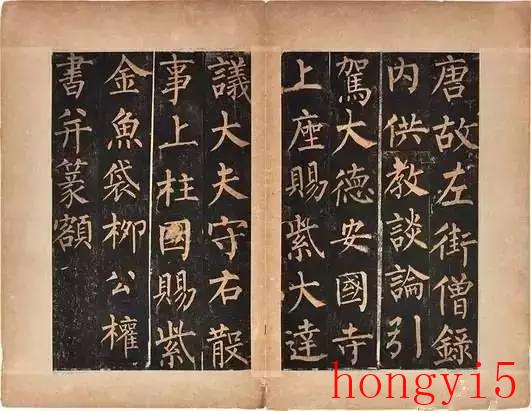 唐故左街僧錄
内供教談論引
駕大德安國寺
上座賜紫大達
議大夫守右散
事上柱國賜紫
金魚袋柳公權
書并篆額
hongyi5